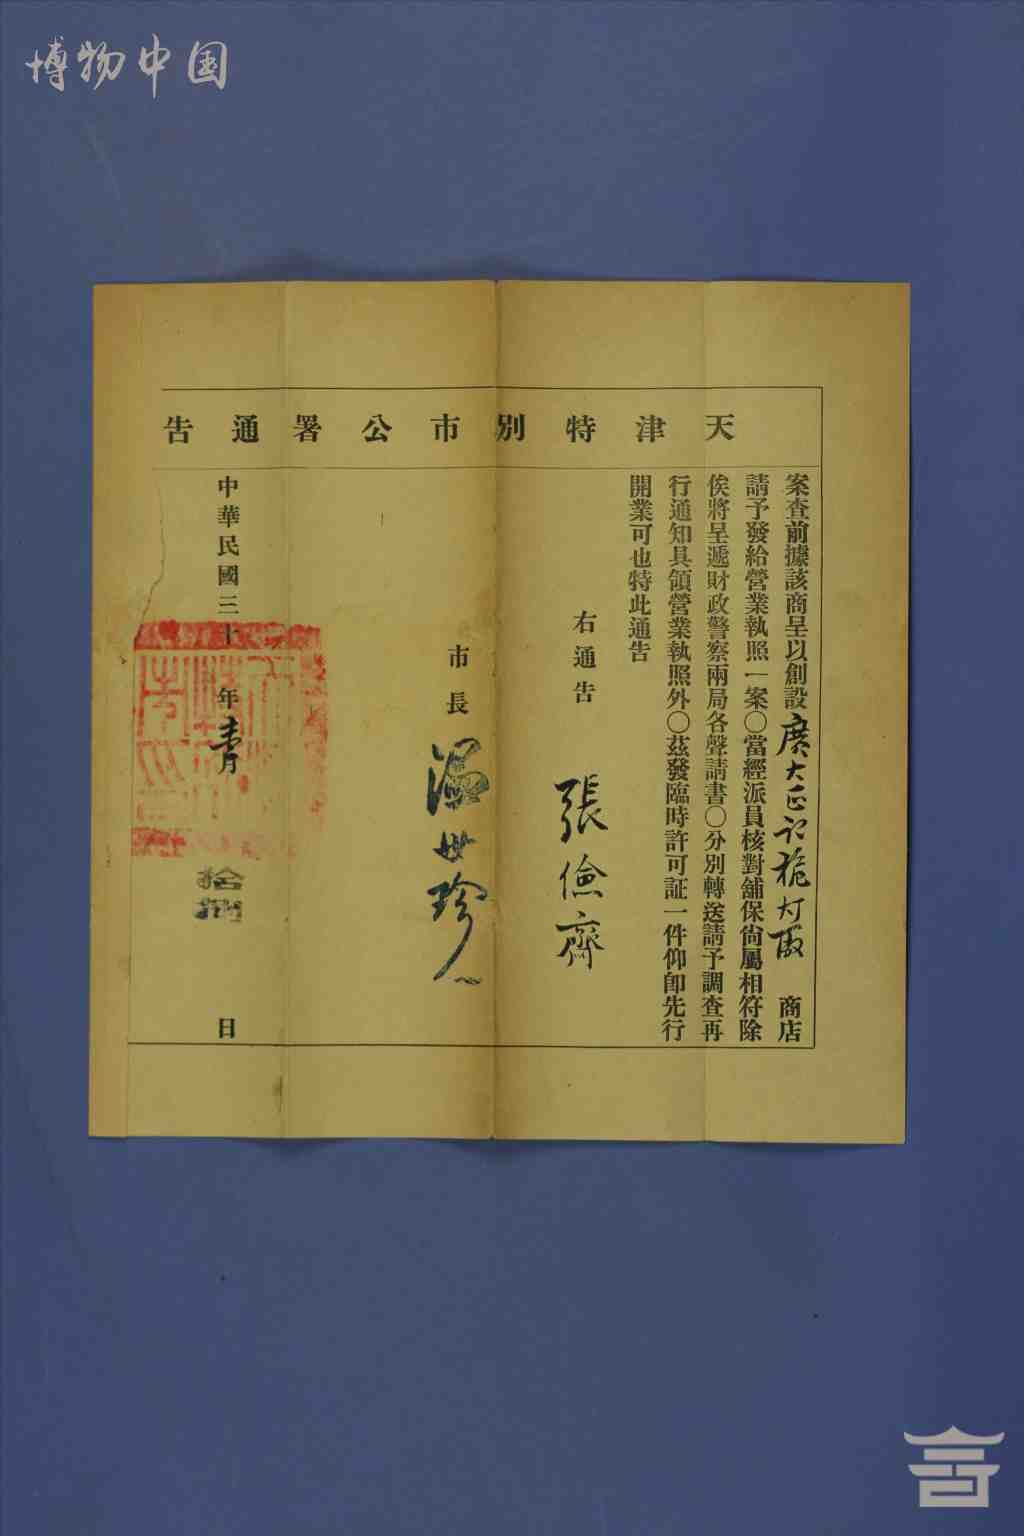 博物中国
天津特別市公署通告
案查前據該商呈以創設廣大正記桅灯廠商店
請予發給營業執照一案〇當經派員核對舖保尙屬相符除
俟將呈遞財政警察兩局各聲請書〇分別轉送請予調查再
行通知具領營業執照外〇茲發臨時許可証一件仰卽先行
開業可也特此通告
右通告 張儉齋
市長 溫世珍
中華民國三十年 月拾 日